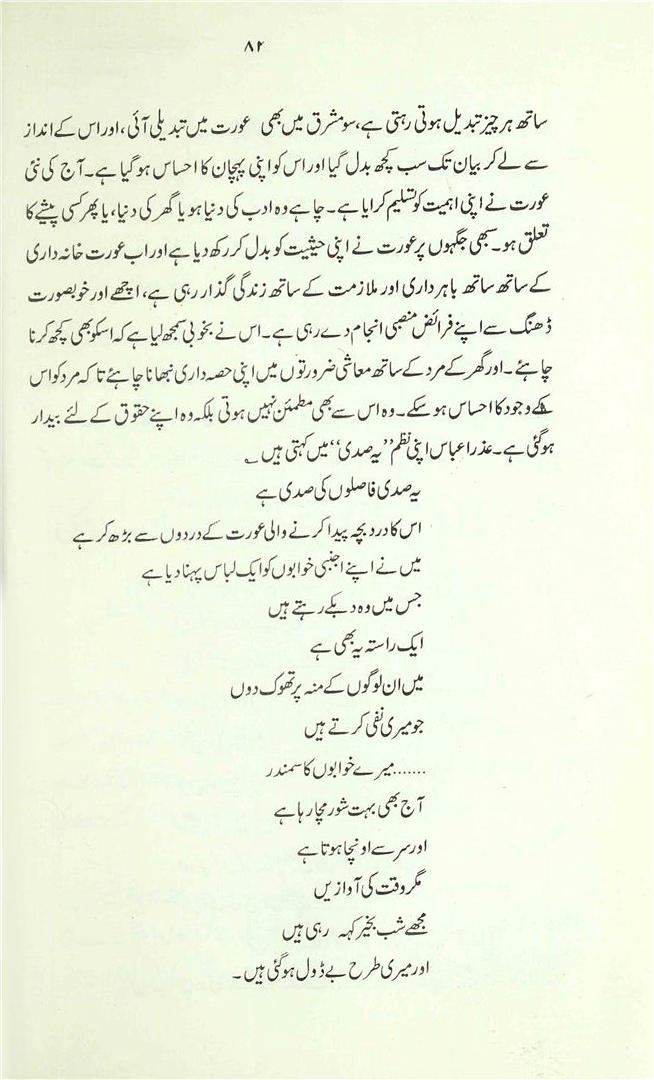 ۸۲
ساتھ ہر چیز تبدیل ہوتی رہتی ہے، سو مشرق میں بھی عورت میں تبدیلی آئی، اور اس کے انداز
سے لے کر بیان تک سب کچھ بدل گیا اور اس کو اپنی پہچان کا احساس ہو گیا ہے۔ آج کی نئی
عورت نے اپنی اہمیت کو تسلیم کرایا ہے۔ چاہے وہ ادب کی دنیا ہو یا گھر کی دنیا، یا پھر کسی پیشے کا
تعلق ہو۔ سبھی جگہوں پر عورت نے اپنی حیثیت کو بدل کر رکھ دیا ہے اور اب عورت خانہ داری
کے ساتھ ساتھ باہر داری اور ملازمت کے ساتھ زندگی گذار رہی ہے، اچھے اور خوبصورت
ڈھنگ سے اپنے فرائض منصبی انجام دے رہی ہے۔ اس نے بخوبی سمجھ لیا ہے کہ اسکو بھی کچھ کرنا
چاہئے۔ اور گھر کے مرد کے ساتھ معاشی ضرورتوں میں اپنی حصہ داری نبھانا چاہئے تا کہ مرد کو اس
کے وجود کا احساس ہو سکے۔ وہ اس سے بھی مطمئن نہیں ہوتی بلکہ وہ اپنے حقوق کے لئے بیدار
ہو گئی ہے۔ عذرا عباس اپنی نظم ”یہ صدی“ میں کہتی ہیں ؂
یہ صدی فاصلوں کی صدی ہے
اس کا درد بچہ پیدا کرنے والی عورت کے دردوں سے بڑھ کر ہے
میں نے اپنے اجنبی خوابوں کو ایک لباس پہنا دیا ہے
جس میں وہ دبکے رہتے ہیں
ایک راستہ یہ بھی ہے
میں ان لوگوں کے منہ پر تھوک دوں
جو میری نفی کرتے ہیں
.......میرے خوابوں کا سمندر
آج بھی بہت شور مچا رہا ہے
اور سر سے اونچا ہوتا ہے
مگر وقت کی آوازیں
مجھے شب بخیر کہہ رہی ہیں
اور میری طرح بے ڈول ہو گئی ہیں۔